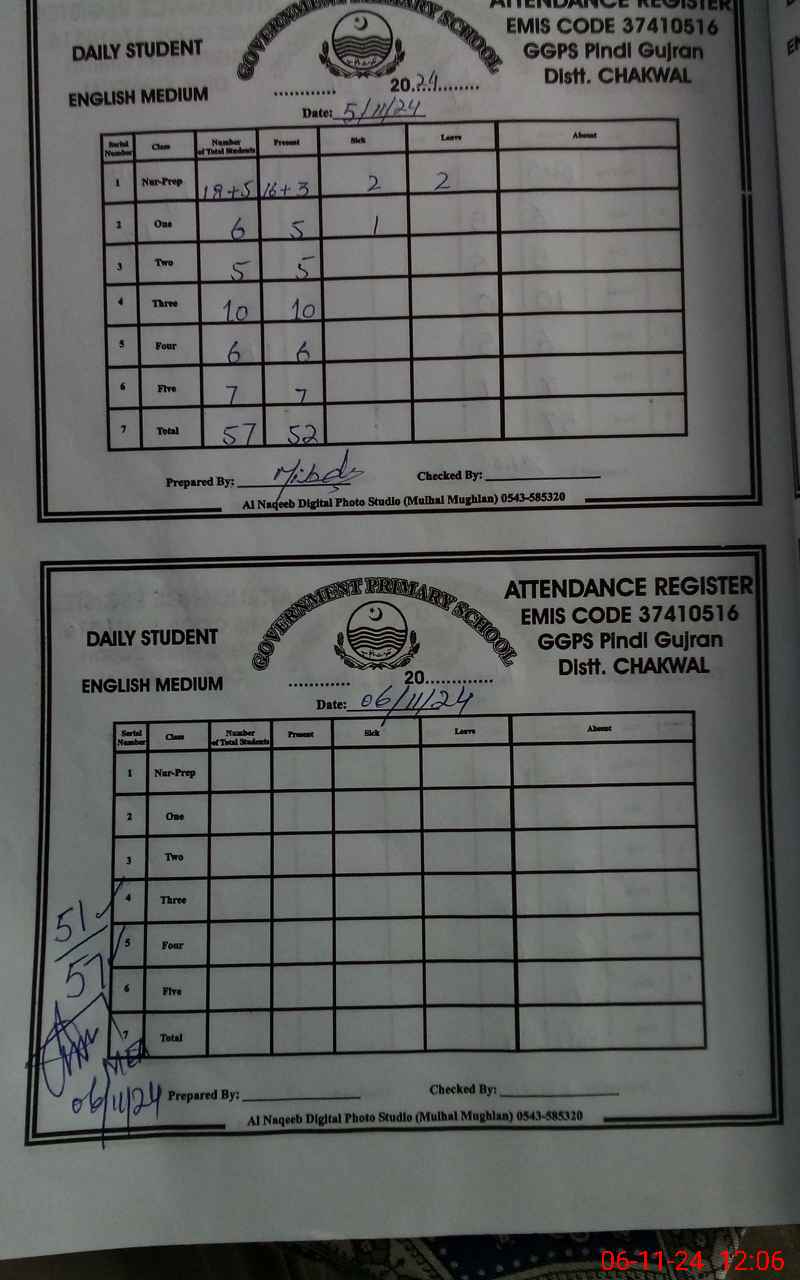 ATTENDANCE REGISTER
EMIS CODE 37410516
GGPS Pindi Gujran
Distt. CHAKWAL
DAILY STUDENT
ENGLISH MEDIUM
GOVERNMENT PRIMARY SCHOOL
............ 20.24........
Date: 5/11/24
Serial Number Class Number of Total Students Present Sick Leave Absent
1 Nur-Prep 18+5 16+3 2 2
2 One 6 5 1
3 Two 5 5
4 Three 10 10
5 Four 6 6
6 Five 7 7
7 Total 57 52
Prepared By: Checked By:
Al Naqeeb Digital Photo Studio (Mulhal Mughlan) 0543-585320
GOVERNMENT PRIMARY SCHOOL
ATTENDANCE REGISTER
EMIS CODE 37410516
GGPS Pindi Gujran
Distt. CHAKWAL
DAILY STUDENT
ENGLISH MEDIUM
............ 20.............
Date: 06/11/24
Serial Number Class Number of Total Students Present Sick Leave Absent
1 Nur-Prep
2 One
3 Two
4 Three
5 Four
6 Five
7 Total
51
57
MEA
06/11/24
Prepared By: Checked By:
Al Naqeeb Digital Photo Studio (Mulhal Mughlan) 0543-585320
06-11-24 12:06